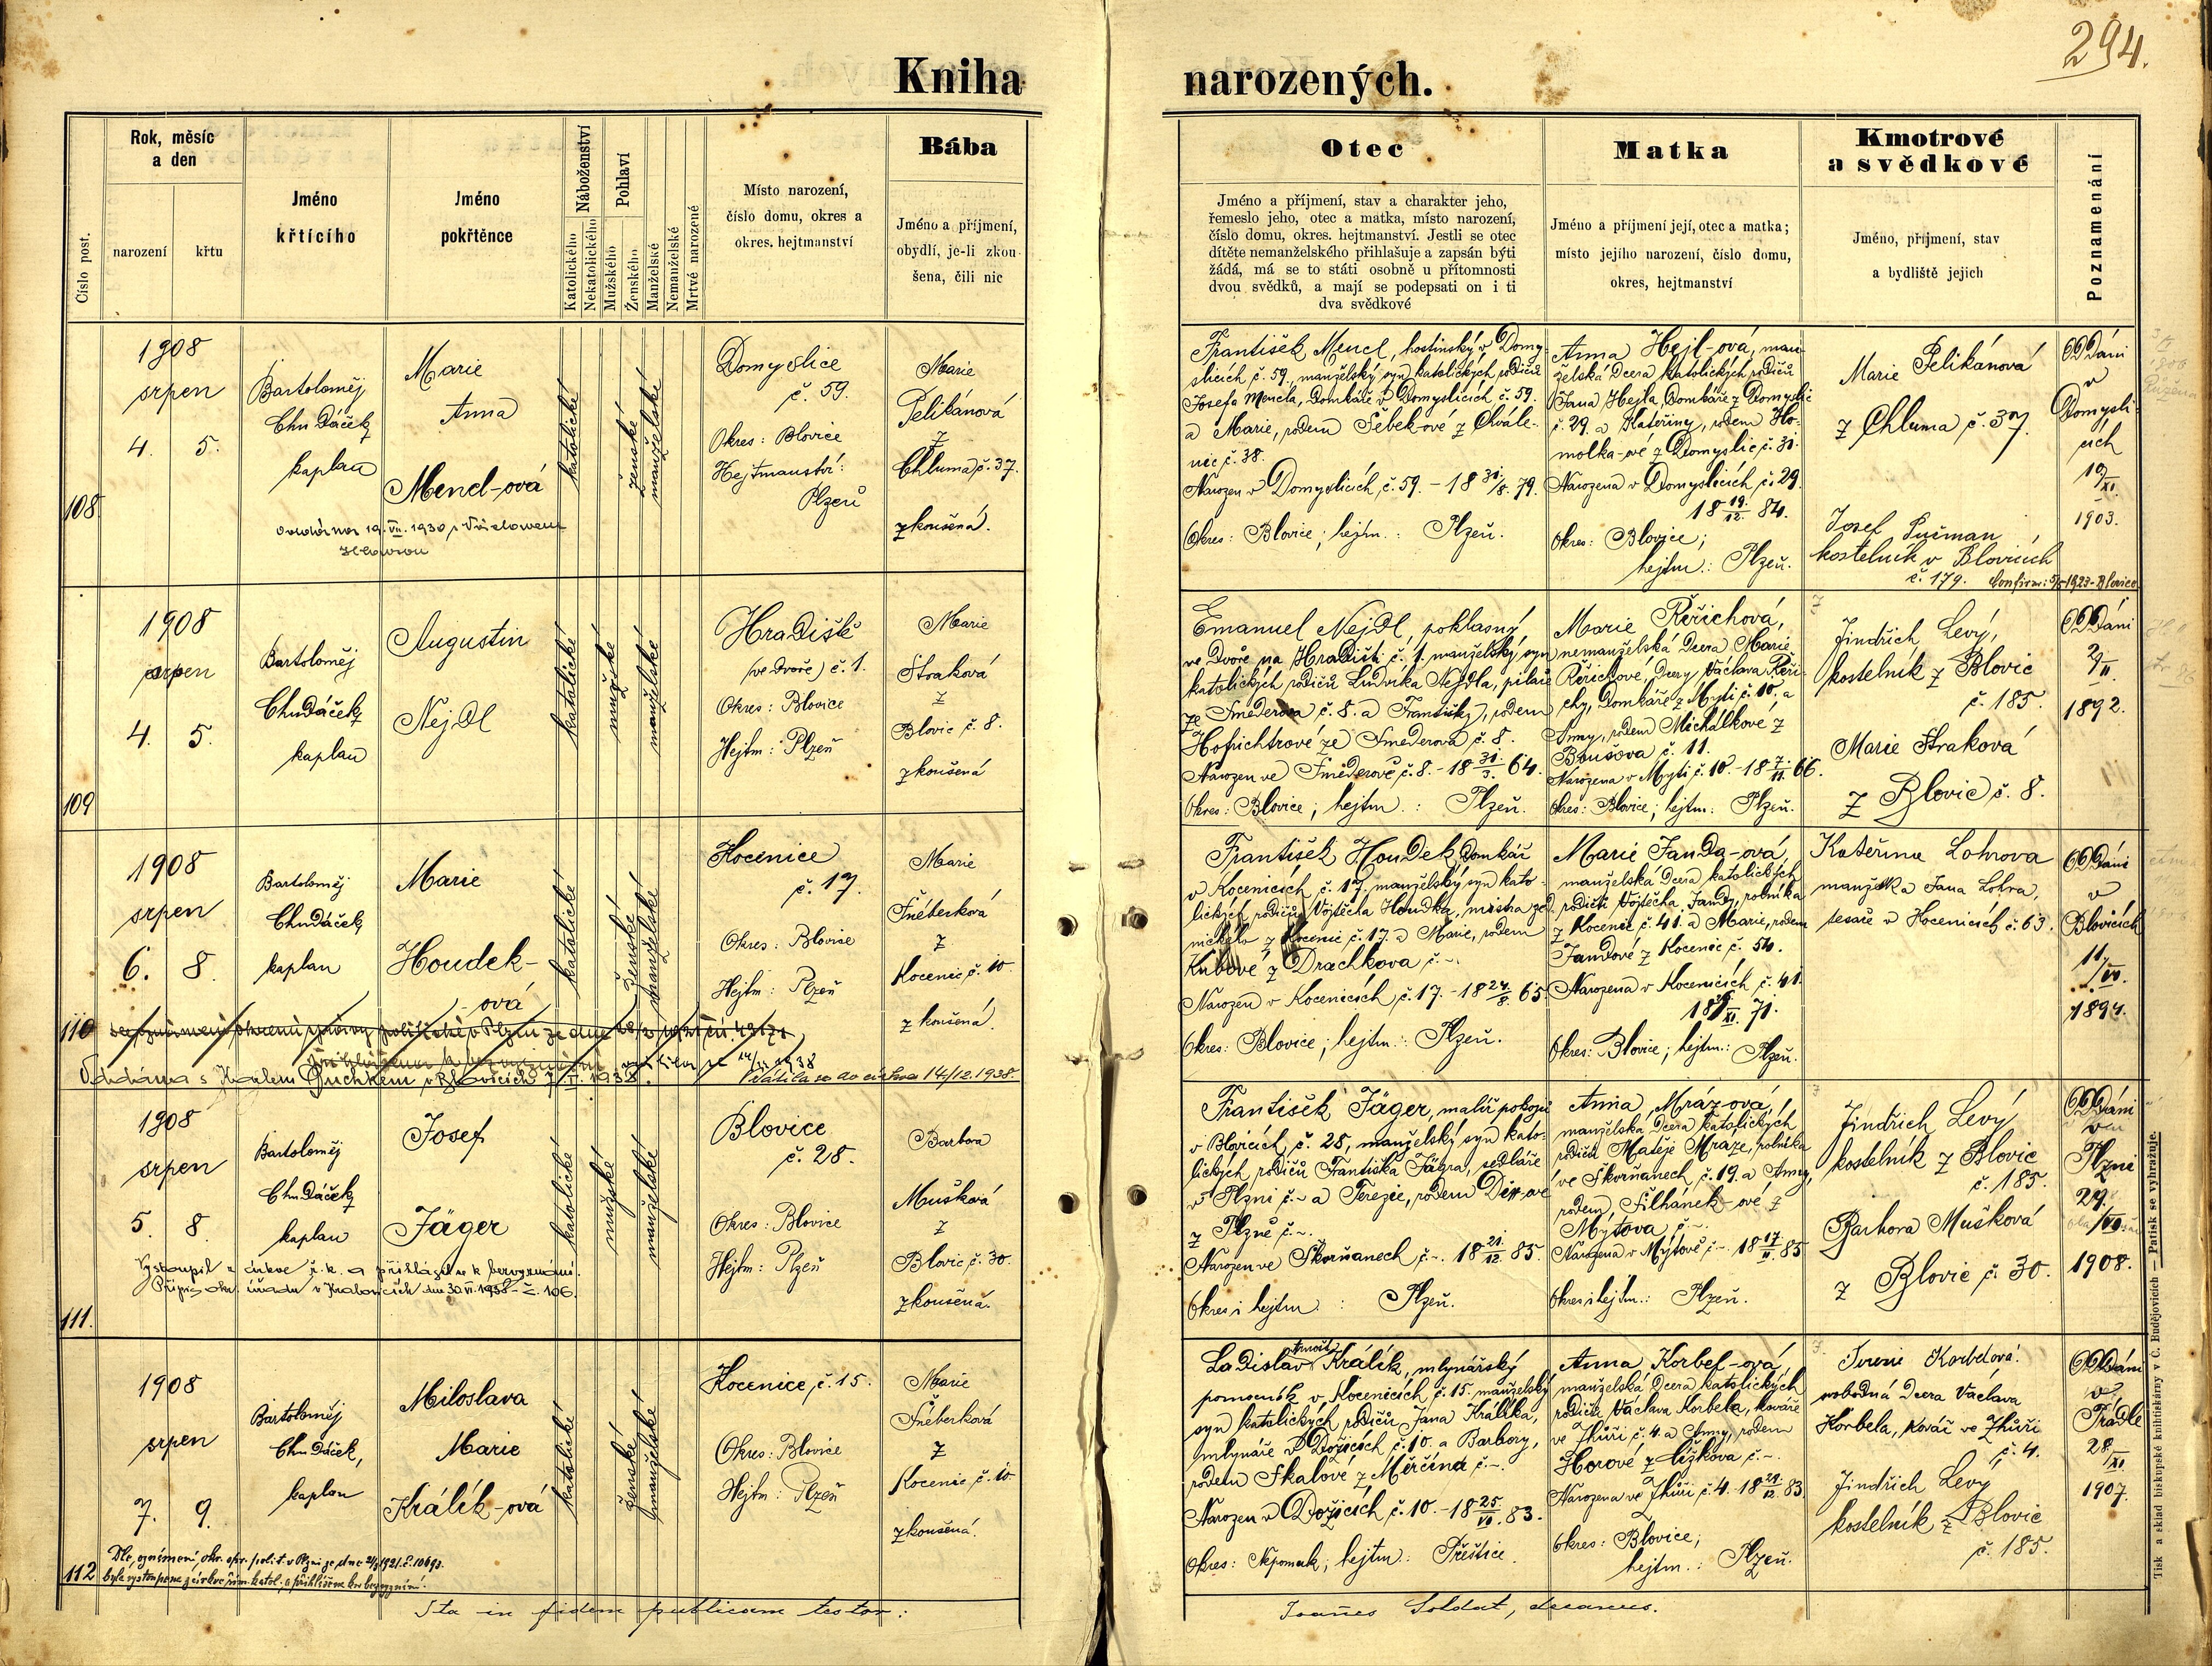 294.
Kniha narozených.
Číslo post.
Rok, měsíc
a den
narození
křtu
Jméno
křtícího
Jméno
pokřtěnce
Náboženství
Katolického
Nekatolického
Pohlaví
Mužského
Ženského
Manželské
Nemanželské
Mrtvě narozené
Místo narození,
číslo domu, okres a
okres. hejtmanství
Bába
Jméno a příjmení,
obydlí, je-li zkou-
šena, čili nic
Otec
Jméno a příjmení, stav a charakter jeho,
řemeslo jeho, otec a matka, místo narození,
číslo domu, okres. hejtmanství. Jestli se otec
dítěte nemanželského přihlašuje a zapsán býti
žádá, má se to státi osobně u přítomnosti
dvou svědků, a mají se podepsati on i ti
dva svědkové
Matka
Jméno a příjmení její, otec a matka;
místo jejího narození, číslo domu,
okres, hejtmanství
Kmotrové
a svědkové
Jméno, příjmení, stav
a bydliště jejich
Poznamenání
108.
1908
srpen
4. 5.
Bartoloměj
Chudáček
kaplan
Marie
Anna
Mencl-ová
katolické
ženské
manželské
Domyslice
č. 59.
Okres: Blovice
Hejtmanství:
Plzeň
Marie
Pelikánová
z
Chluma č. 37.
zkoušená.
František Mencl, hostinský v Domy-
slicích č. 59., manželský syn katolických rodičů
Josefa Mencla, domkáře v Domyslicích č. 59.
a Marie, rodem Šebek-ové z Chvále-
nic č. 38.
Narozen v Domyslicích č. 59. - 18 31/8. 79.
Okres: Blovice; hejtm.: Plzeň.
Anna Hejl-ová, man-
želská dcera katolických rodičů
Jana Hejla, domkáře z Domyslic
č. 29. a Kateřiny, rodem Ho-
molka-ové z Domyslic č. 31.
Narozena v Domyslicích č. 29.
18 19/12. 84.
Okres: Blovice;
hejtm.: Plzeň.
Marie Pelikánová
z Chluma č. 37.
Josef Pučman,
kostelník v Blovicích
č. 179. Confirm: 5/5 1923 - Blovice
Oddáni
v
Domysli-
cích
19/XI.
1903.
109
1908
srpen
4. 5.
Bartoloměj
Chudáček
kaplan
Augustin
Nejdl
katolické
mužské
manželské
Hradiště
(ve dvoře) č. 1.
Okres: Blovice
Hejtm: Plzeň
Marie
Straková
z
Blovic č. 8.
zkoušená
Emanuel Nejdl, poklasný
ve dvoře na Hradišti č. 1. manželský syn
katolických rodičů Ludvíka Nejdla, pilaře
ze Smederova č. 8. a Františky, rodem
Hofrichtrové ze Smederova č. 8.
Narozen ve Směderově č. 8. - 18 31./3. 64.
Okres: Blovice; hejtm.: Plzeň.
Marie Řeřichová,
nemanželská dcera Marie
Řeřichové, dcery Václava Řeři-
chy, domkáře z Mytí č. 10. a
Anny, rodem Michálkové z
Boušova č. 11.
Narozena v Mytí č. 10. - 18 7./11. 66.
Okres: Blovice; hejtm: Plzeň.
Jindřich Levý,
kostelník z Blovic
č. 185.
Marie Straková
z Blovic č. 8.
Oddáni
2/II.
1892.
110
1908
srpen
6. 8.
Bartoloměj
Chudáček
kaplan
Marie
Houdek-
-ová
katolické
ženské
manželské
Kocenice
č. 17.
Okres: Blovice
Hejtm: Plzeň
Marie
Šnéberková
z
Kocenic, č. 10.
zkoušená.
Vrátila se do církve 14/12. 1938.
František Houdek, domkář
v Kocenicích č. 17. manželský syn kato-
lických rodičů Vojtěcha Houdka, mistra zed-
nického z Kocenic č. 17. a Marie, rodem
Kubové z Drachkova č. -.
Narozen v Kocenicích č. 17. - 18 24/8. 65.
Okres: Blovice; hejtm.: Plzeň.
Marie Janda-ová,
manželská dcera katolických
rodičů Vojtěcha Jandy, rolníka
z Kocenic č. 41. a Marie, rodem
Jandové z Kocenic č. 54.
Narozena v Kocenicích č. 41.
Okres: Blovice; hejtm.: Plzeň.
Kateřina Lohrova
manželka Jana Lohra,
tesaře v Kocenicích č. 63.
Oddáni
v
Blovicích
11/VI.
1894.
111.
1908
srpen
5. 8.
Bartoloměj
Chudáček
kaplan
Josef
Jäger
Vystoupil z církve ř. k. a přihlásil se k bezvyznání.
Přípis okr. úřadu v Kralovicích dne 30.VI. 1958 - č. 106.
katolické
mužské
manželské
Blovice
č. 28.
Okres: Blovice
Hejtm: Plzeň
Barbora
Mušková
z
Blovic č. 30.
zkoušená.
František Jäger, malíř pokojů
v Blovicích, č. 28, manželský syn kato-
lických rodičů Františka Jägra, sedláře
v Plzni č. - a Terezie, rodem
z Plzně č. -.
Narozen ve Škorňanech č. -. 18 21/12. 85.
Okres i hejtm: Plzeň.
Anna Mráz-ová,
manželská dcera katolických
rodičů Matěje Mráze, rolníka
ve Škorňanech, č. 19. a Anny,
rodem Silhánek-ové z
Mýtova č. -.
Narozena v Mýtově č. -. 18 17/II. 85
Okres i hejtm.: Plzeň.
Jindřich Levý
kostelník z Blovic
č. 185.
Barbora Mušková
z Blovic č. 30.
Oddáni
v
Plzni
29./VII.
1908.
112
1908
srpen
7. 9.
Bartoloměj
Chudáček,
kaplan
Miloslava
Marie
Králík-ová
Dle oznámení okr. spr. polit. v Plzni ze dne 2/3 1921 č. 10693.
byla vystoupena z církve řím. katol. a přihlášena ku bezvyznání.
katolické
ženské
manželské
Kocenice, č. 15.
Okres: Blovice
Hejtm: Plzeň
Marie
Šnéberková
z
Kocenic č. 10
zkoušená.
Ladislav Králík, mlynářský
pomocník v Kocenicích, č. 15. manželský
syn katolických rodičů Jana Králíka,
mlynáře v Dožicích, č. 10. a Barbory,
rodem Skalové z Měrčína č. -.
Narozen v Dožicích č. 10 - 18 25./VI. 83.
Okres: Nepomuk; hejtm: Přeštice.
Anna Korbel-ová,
manželská dcera katolických
rodičů Václava Korbela, kováře
ve Zhůři č. 4. a Anny, rodem
Horové z Čížkova č. -.
Narozena ve Zhůři č. 4. 18 21./12. 83.
Okres: Blovice;
hejtm.: Plzeň.
Terezie Korbelová.
svobodná dcera Václava
Korbela, kovář ve Zhůři
č. 4.
Jindřich Levý
kostelník z Blovic
č. 185.
Oddáni
v
Prádle
28./XI.
1907.
Ita in fidem publicam testor:
Joañes Soldat, decanus.
Tisk a sklad biskupské knihtiskárny v Č. Budějovicích — Patisk se vyhražuje.